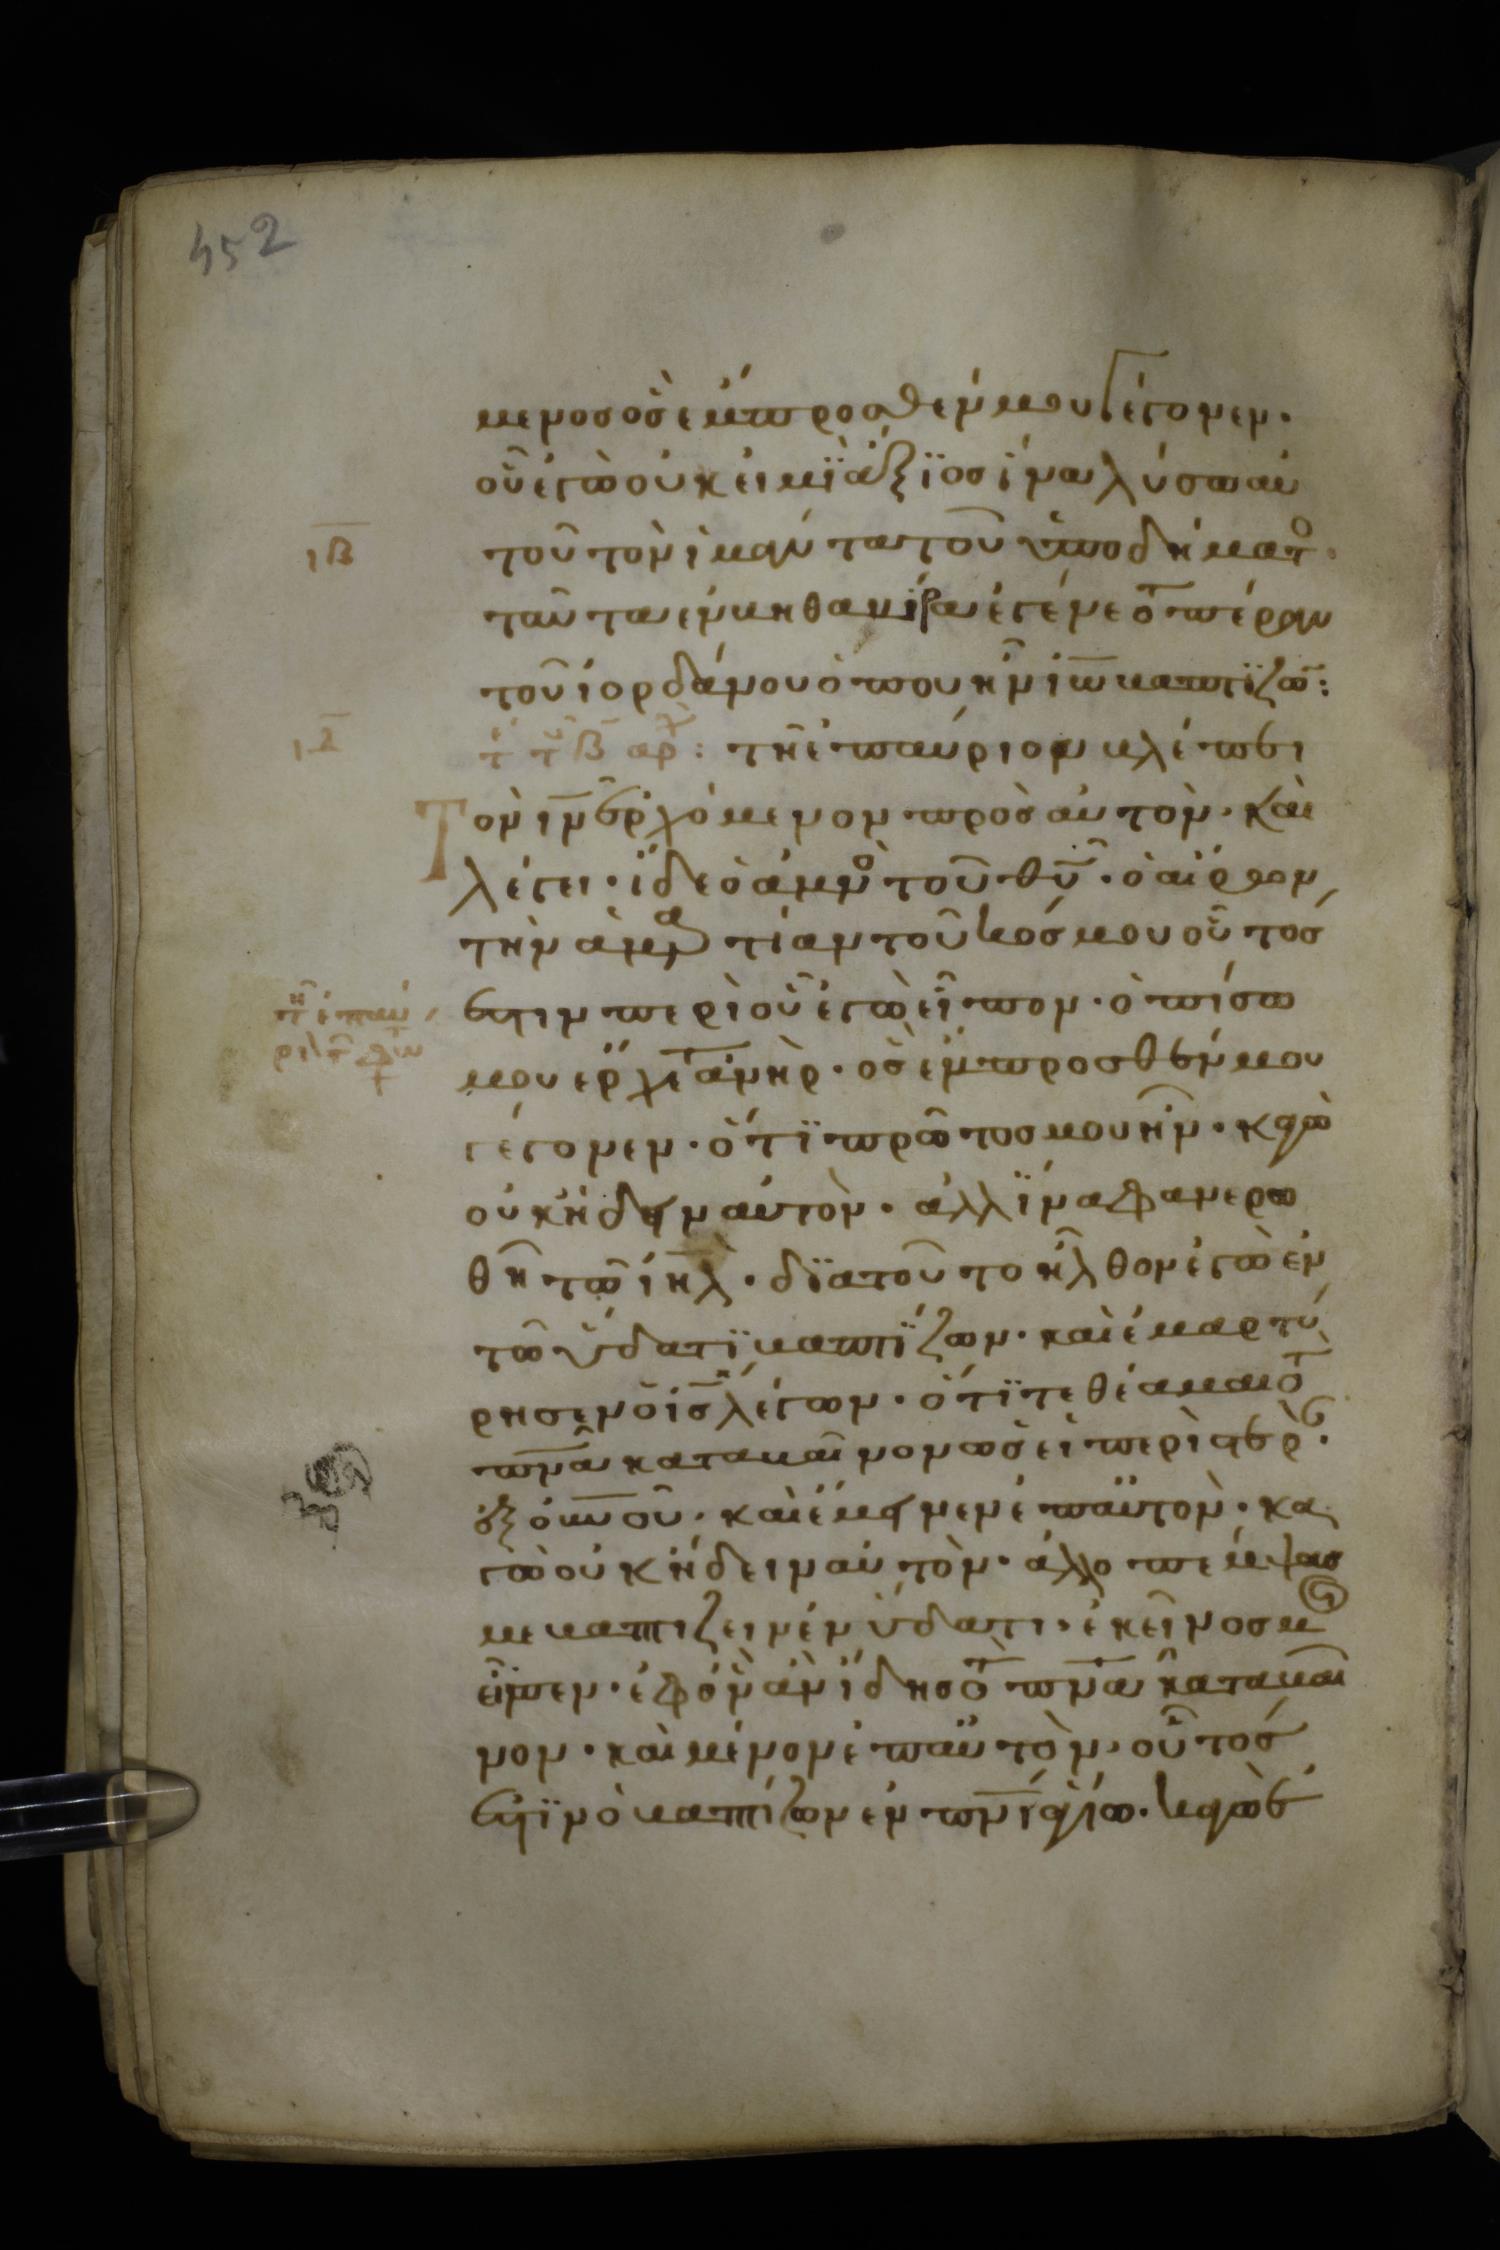 452
μενος ὃς ἔμπροσθέν μου γέγονεν·
οὗ ἐγὼ οὐκ εἰμὶ ἄξϊος ἵνα λύσω αὐ
ιβ
τοῦ τὸν ἱμάντα τοῦ ὑποδήματο·
ταῦτα ἐν κηθανϊβα ἐγένετο πέραν
τοῦ ἰορδάνου ὅπου ἦν ἰω βαπτϊζω:
τῇ ἐπαύριον βλέπει
τὸν ιν ἐρχόμενον πρὸς αὐτὸν· καὶ
λέγει· ἴδε ὁ ἀμνὸ τοῦ θυ· ὁ αἴρων
τὴν ἁμαρτίαν τοῦ κόσμου οὗτός
ἐστιν περὶ οὗ ἐγὼ εἶπον· ὀπίσω
μου ἔρχετ ἀνὴρ· ὃς ἔμπροσθέν μου
γέγονεν· ὅτϊ πρῶτός μου ἦν· κἀγὼ
οὐκ ἤδειν αὐτὸν· ἀλλ ἵνα φανερω
θῆ τῶ ιηλ· δϊατοῦτο ἦλθον ἐγὼ ἐν
τῶ ὕδατϊ βαπτϊζων· καὶ ἐμαρτύ
ρησεν ὁ ις λέγων· ὅτϊ τεθέαμαι τὸ
πνα καταβαῖνον ὡσεὶ περιστερὰ·
ἐξ οὐνοῦ· καὶ ἔμεινεν ἐπαὐτὸν· κα
γὼ οὐκ ἤδειν αὐτὸν· ἀλλ ὁ πέμψας
με βαπτίζειν ἐν ὕδατι· ἐκεῖνός μ
εἶπεν· ἐφ ὃν ἂν ἴδης τὸ πνα καταβαῖ
νον· καὶ μένον ἐπαὐτὸν· οὗτός
ἐστϊν ὁ βαπτίζων ἐν πνι ἁγίω· κἀγὼ ἑ